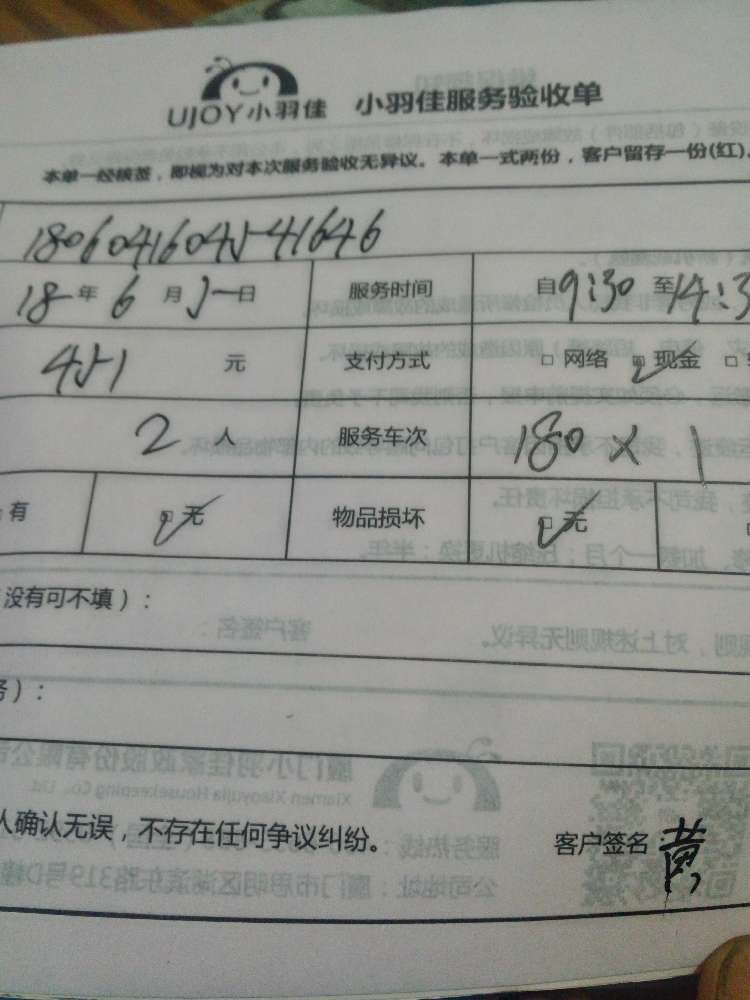 UJOY小羽佳 小羽佳服务验收单
本单一经核签，即视为对本次服务验收无异议。本单一式两份，客户留存一份(红)
18060416045 41646
18年 6月 5日 服务时间 自9:30 至14:3
451 元 支付方式 □ 网络 ☑ 现金 □
2 人 服务车次 180 x 1
有 ☑ 无 物品损坏 ☑ 无
没有可不填）：
务）：
人确认无误，不存在任何争议纠纷。 客户签名 黄